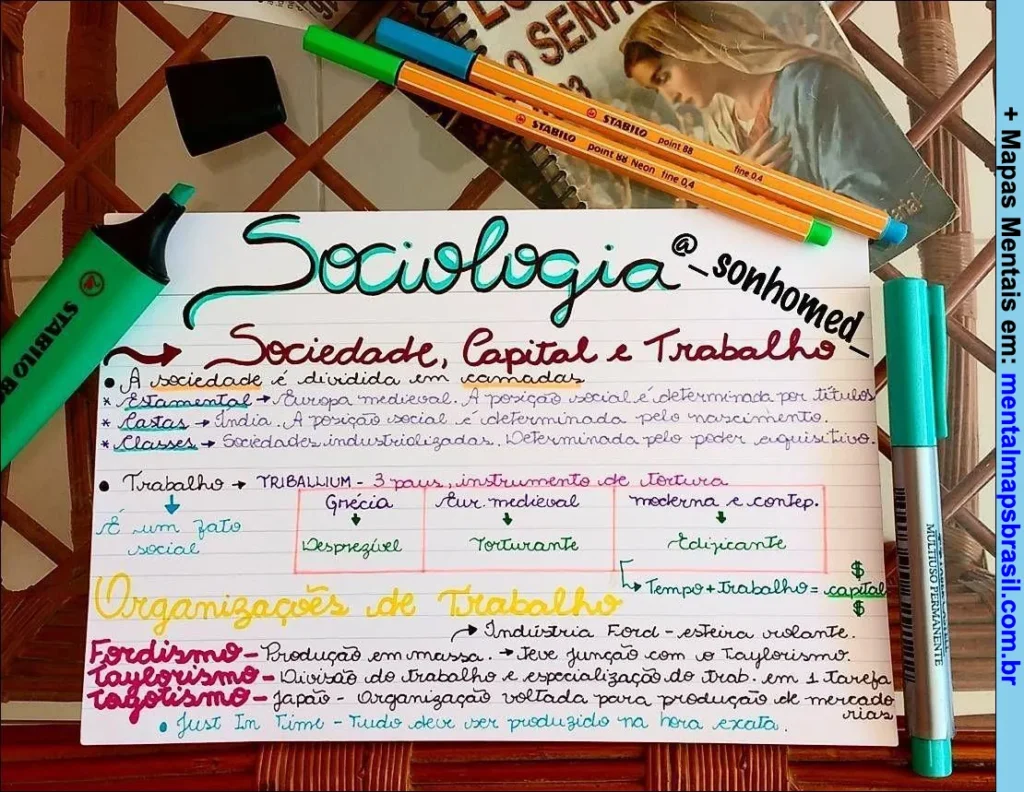 O SENHO
STABILO point 88 fine 0,4
STABILO point 88 Neon fine 0,4
STABILO BO
Sociologia
@_sonhomed_
Sociedade, Capital e Trabalho
• A sociedade é dividida em camadas
* Estamental → Europa medieval. A posição social é determinada por títulos
* Castas → Índia. A posição social é determinada pelo nascimento.
* Classes → Sociedades industrializadas. Determinada pelo poder aquisitivo.
• Trabalho → TRIBALLIUM - 3 paus, instrumento de tortura
É um fato
social
Grécia Eur. medieval moderna e contep.
Desprezível Torturante Edificante
→ Tempo + trabalho = capital
$
$
Organizações de Trabalho
→ Indústria Ford - esteira rolante.
Fordismo - Produção em massa. → Teve junção com o Taylorismo.
Taylorismo - Divisão do trabalho e especialização do trab. em 1 tarefa
Toyotismo - Japão - Organização voltada para produção de mercado
rias
• Just In Time - Tudo deve ser produzido na hora exata.
MULTIUSO PERMANENTE
+ Mapas Mentais em: mentalmapsbrasil.com.br